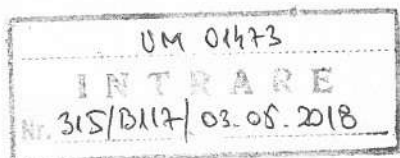 UM 01473
INTRARE
Nr. 315/B117/ 03.05.2018